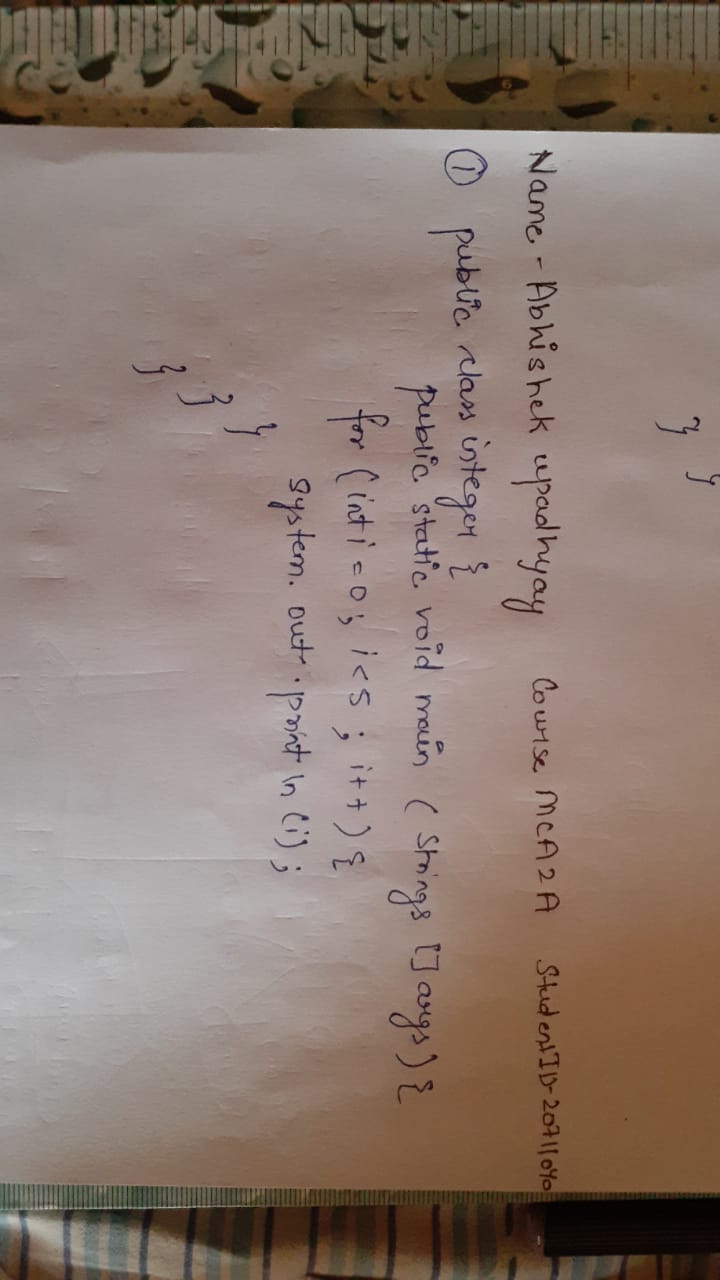 } }
Name - Abhishek upadhyay Course MCA2A Student ID-20711040
① public class integer {
public static void main ( Strings [] args) {
for ( int i = 0 ; i < 5 ; i++ ) {
System. out . print ln (i) ;
}
}
}